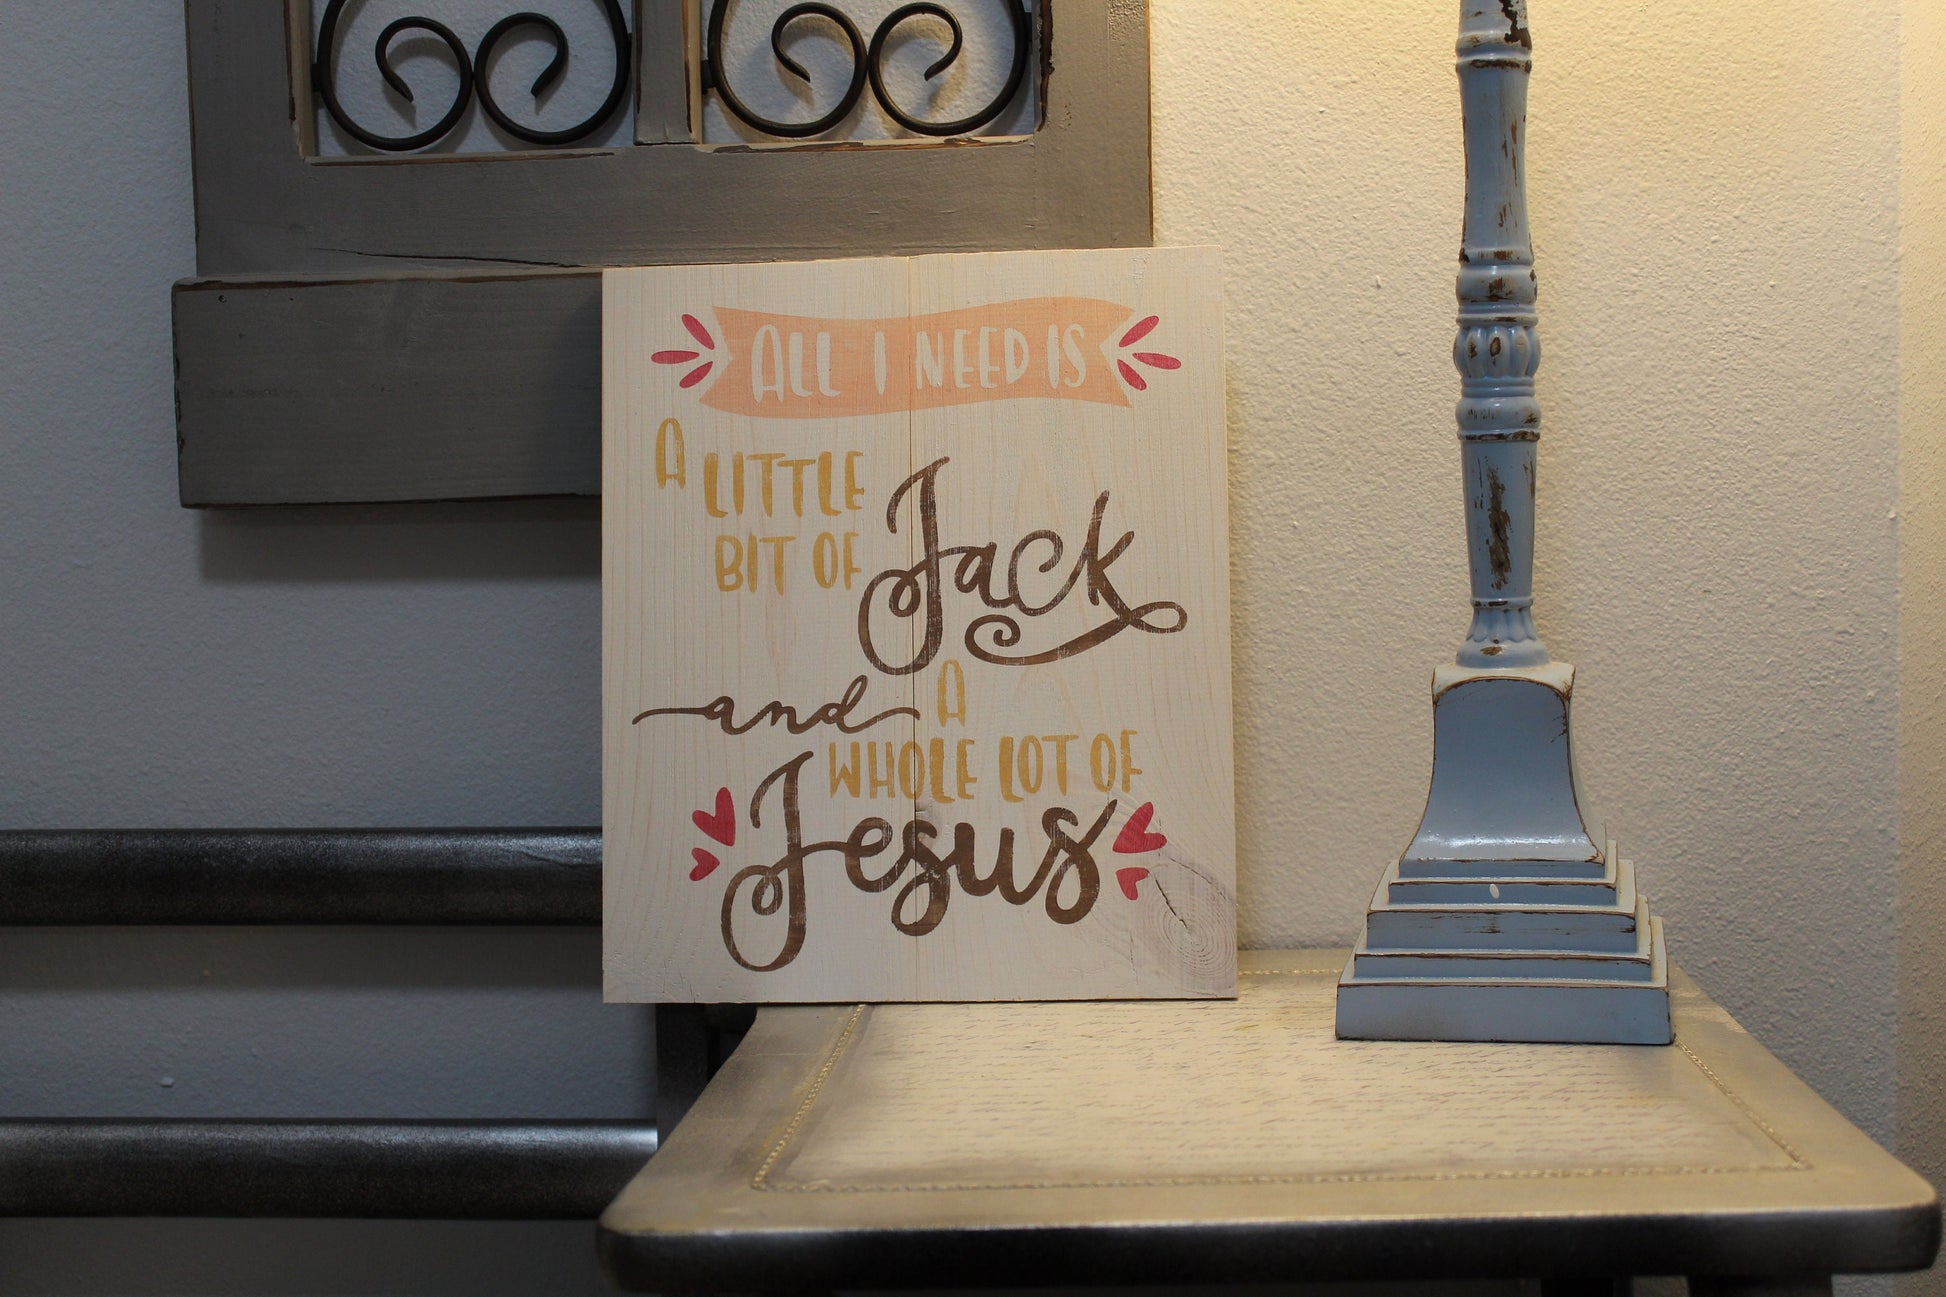 ALL I NEED IS
A
LITTLE
BIT OF Jack
and A
WHOLE LOT OF
Jesus